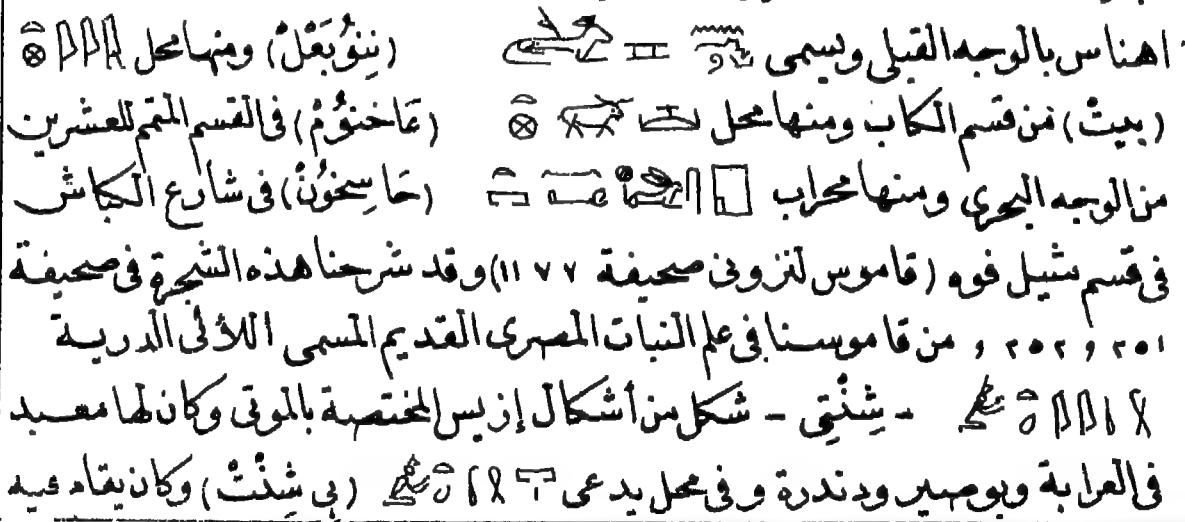 اهناس بالوجه القبلى ويسمى (نِنوُبَعْلْ) ومنها محل
(بيِتْ) فن قسم الكاب ومنها محل (عَاخنوُمْ) فى القسم المتمم للعشرين
من الوجه البحرى ومنها محراب (حَاسِخوُنْ) فى شارع الكباش
فى قسم مثيل فوه (قاموس لنزونى صحيفة ١١٧٧) وقد شرحنا هذه الشجرة فى صحيفة
٢٥١ و ٢٥٢ و من قاموسنا فى علم النبات المصرى القديم المسمى اللألئ الدرية
- شِنْتِى - شكل من أشكال إزيس المختصة بالموتى وكان لها معبد
فى العرابة وبوصير ودندرة و فى محل يدعى (بِى شِنْتْ) وكان يقام فيه